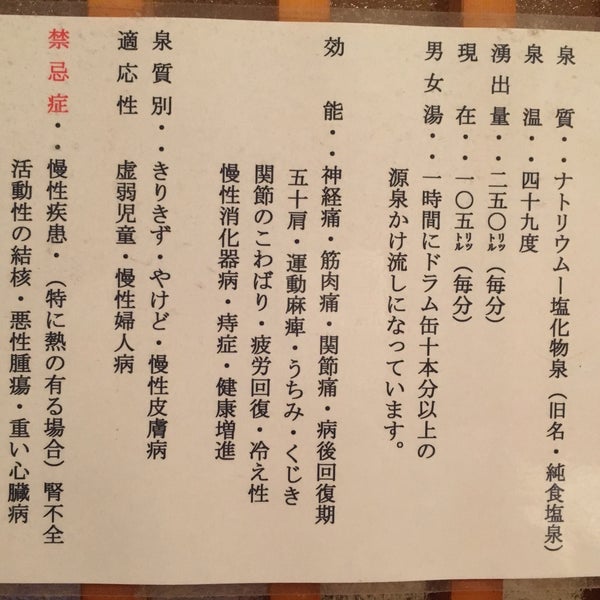 泉質・・ナトリウムー塩化物泉（旧名・純食塩泉）
泉温・・四十九度
湧出量・・二五〇㍑（毎分）
現在・・一〇五㍑（毎分）
男女湯・・一時間にドラム缶十本分以上の
源泉かけ流しになっています。
効能・・神経痛・筋肉痛・関節痛・病後回復期
五十肩・運動麻痺・うちみ・くじき
関節のこわばり・疲労回復・冷え性
慢性消化器病・痔症・健康増進
泉質別・・きりきず・やけど・慢性皮膚病
適応性 虚弱児童・慢性婦人病
禁忌症・・慢性疾患・（特に熱の有る場合）腎不全
活動性の結核・悪性腫瘍・重い心臓病